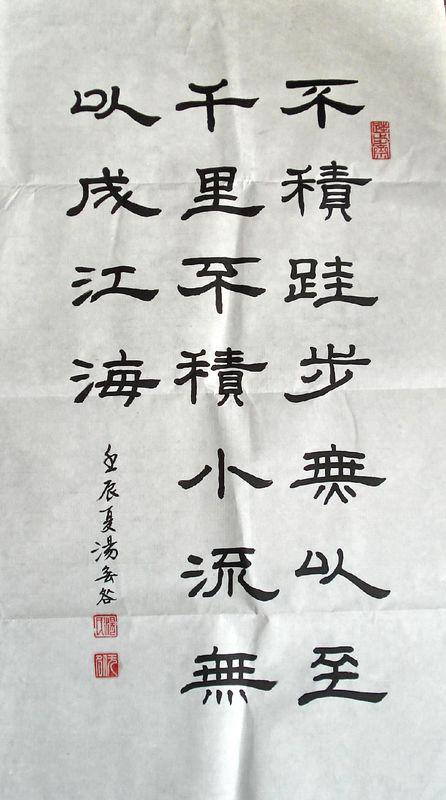 不積跬步無以至
千里不積小流無
以成江海
壬辰夏湯谷